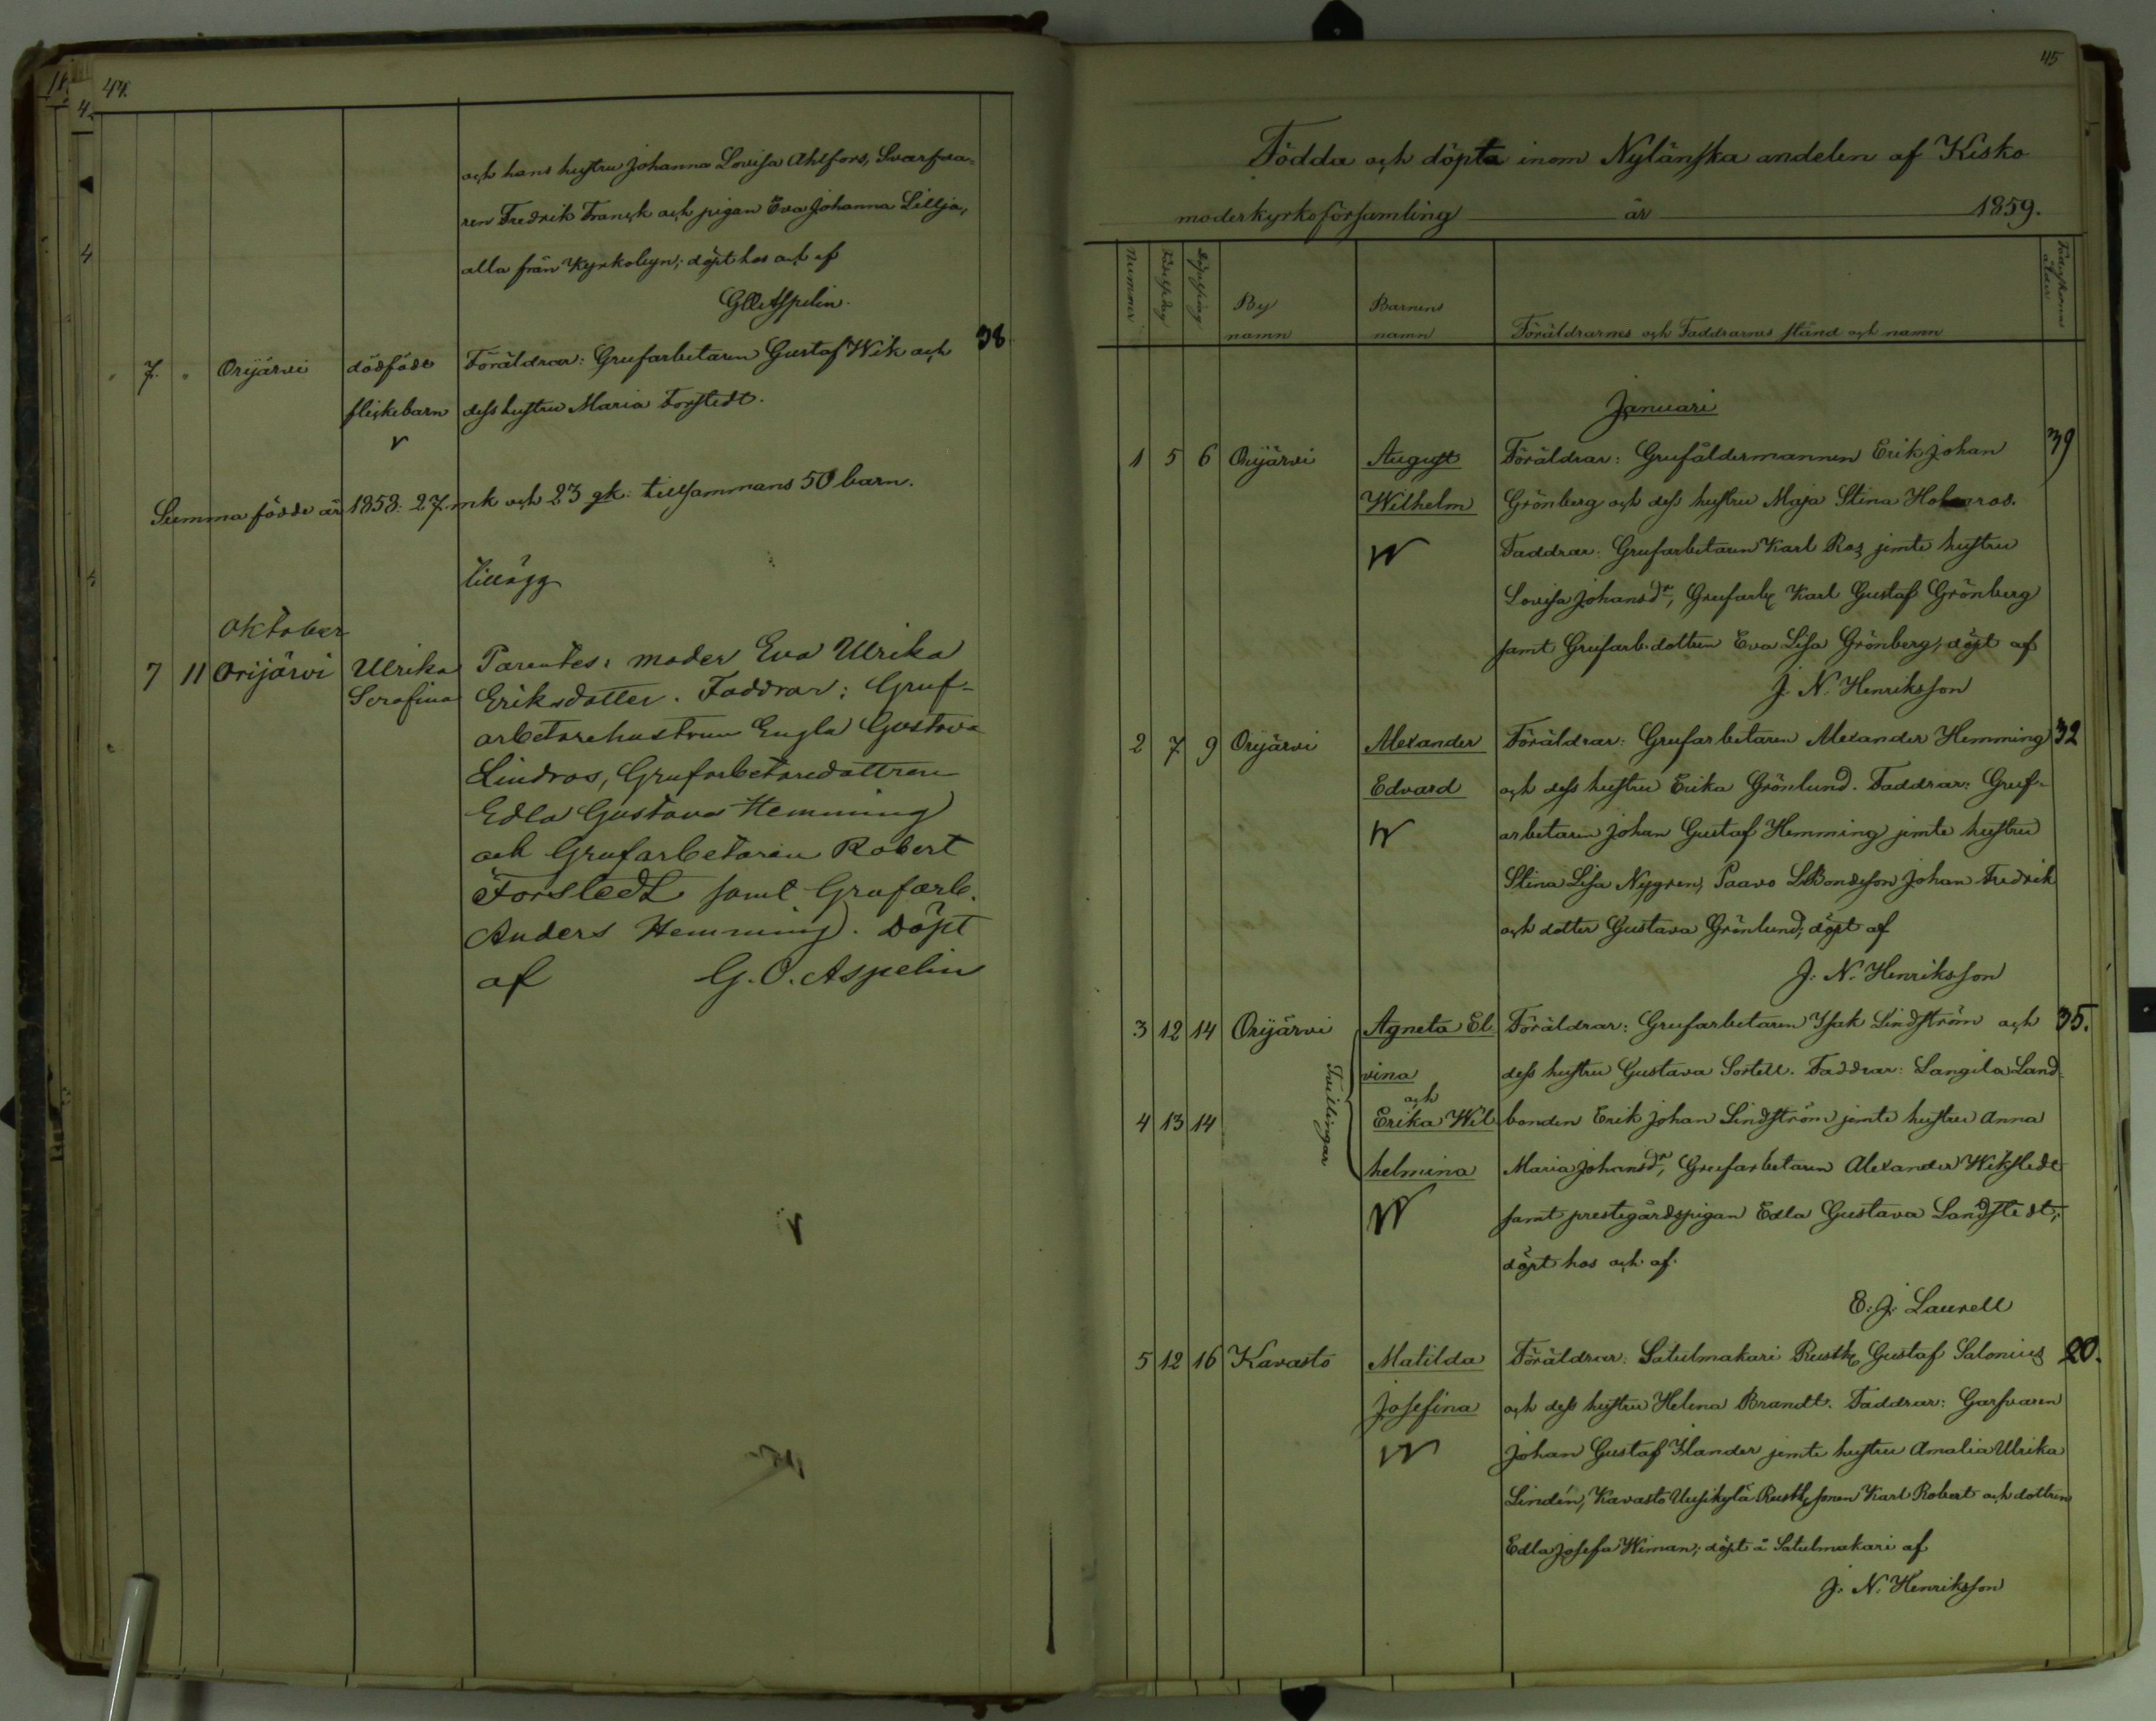 44.
och hans hustru Johanna Lovisa Ahlfors, Svarfva-
ren Fredrik Franck och pigan Eva Johanna Lillja,
alla från Kyrkobyn; döpt hos och af
G O Aspelin.
" 7. " Orijärvi dödfödt Föräldrar: Grufarbetaren Gustaf Wik och 38
flickebarn dess hustru Maria Forstedt.
Summa födde år 1858: 27 mk och 23 qk: tillsammans 50 barn.
Tillägg
Oktober
7 11 Orijärvi Ulrika Parentes: moder Eva Ulrika
Serafina Eriksdotter. Faddrar: Gruf-
arbetarehustrun Engla Gustava
Lindros, Grufarbetaredottren
Edla Gustava Hemming
och Grufarbetaren Robert
Forstedt samt Grufarb.
Anders Hemming. Döpt
af G. O. Aspelin
45
Födda och döpta inom Nyländska andelen af Kisko
moderkyrkoförsamling år 1859.
Nummer Födelsedag Döpelsedag By namn Barnens namn Föräldrarnes och Faddrarnes stånd och namn Föderskorns ålder
Januari
1 5 6 Orijärvi August Föräldrar: Grufåldermannen Erik Johan 39
Wilhelm Grönberg och dess hustru Maja Stina Holmros.
Faddrar: Grufarbetaren Karl Ros jemte hustru
Lovisa Johansdr, Grufarb. Karl Gustaf Grönberg
samt Grufarb. dottren Eva Lisa Grönberg; döpt af
J. N. Henriksson
2 7 9 Orijärvi Alexander Föräldrar: Grufarbetaren Alexander Hemming 32
Edvard och dess hustru Erika Grönlund. Faddrar: Gruf-
arbetaren Johan Gustaf Hemming jemte hustru
Stina Lisa Nygren, Paavo LBondeson Johan Fredrik
och dotter Gustava Grönlund; döpt af
J. N. Henriksson
3 12 14 Orijärvi Agneta El Föräldrar: Grufarbetaren Isak Lindström och 35.
Tvillingar
vina dess hustru Gustava Sortell. Faddrar: Langila Land-
och
4 13 14 Erika Wil bonden Erik Johan Lindström jemte hustru Anna
helmina Maria Johansdr, Grufarbetaren Alexander Wikstedt
samt prestegårdspigan Edla Gustava Landstedt;
döpt hos och af
E. J. Laurell
5 12 16 Kavasto Matilda Föräldrar: Satulmakari Rusth. Gustaf Salonius 20.
Josefina och dess hustru Helena Brandt. Faddrar: Garfvaren
Johan Gustaf Ilander jemte hustru Amalia Ulrika
Lindén, Kavasto Uusikylä Rusth. sonen Karl Robert och dottren
Edla Josefa Wiman; döpt å Satulmakari af
J. N. Henriksson